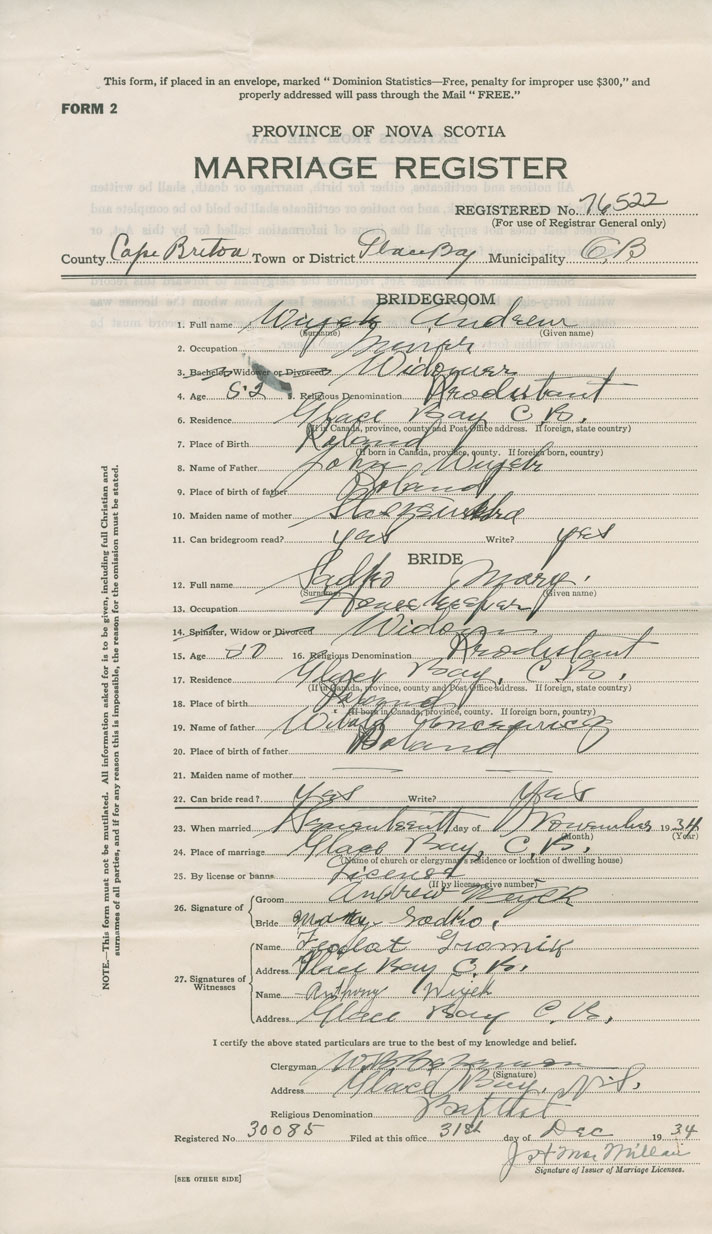 This form, if placed in an envelope, marked “ Dominion Statistics—Free, penalty for improper use $300,” and
properly addressed will pass through the Mail “ FREE.”
FORM 2
PROVINCE OF NOVA SCOTIA
MARRIAGE REGISTER
REGISTERED No. 76522
(For use of Registrar General only)
County Cape Breton Town or District Glace Bay Municipality C B
BRIDEGROOM
1. Full name Wyjek Andrew
(Surname) (Given name)
2. Occupation Miner
3. Bachelor, Widower or Divorced Widower
4. Age 52 5. Religious Denomination Prodistant
6. Residence Glace Bay C. B.
(If in Canada, province, county and Post Office address. If foreign, state country)
7. Place of Birth Poland
(If born in Canada, province, county. If foreign born, country)
8. Name of Father John Wyjek
9. Place of birth of father Poland
10. Maiden name of mother
11. Can bridegroom read? yes Write? yes
BRIDE
12. Full name Sadko Mary
(Surname) (Given name)
13. Occupation House keeper
14. Spinster, Widow or Divorced Widow
15. Age 50 16. Religious Denomination Prodistant
17. Residence Glace Bay, C. B.
(If in Canada, province, county and Post Office address. If foreign, state country)
18. Place of birth Poland
(If born in Canada, province, county. If foreign born, country)
19. Name of father
20. Place of birth of father Poland
21. Maiden name of mother
22. Can bride read? Yes Write? Yes
23. When married day of November 1934
(Month) (Year)
24. Place of marriage Glace Bay, C. B.
(Name of church or clergyman's residence or location of dwelling house)
25. By license or banns License
(If by license, give number)
26. Signature of Groom Andrew Wyjek
Bride Mary Sadko.
27. Signatures of Witnesses Name Feodat Gromik
Address Glace Bay C. B.
Name Anthony Wijek
Address Glace Bay C. B.
I certify the above stated particulars are true to the best of my knowledge and belief.
Clergyman
(Signature)
Address Glace Bay, N. S.
Religious Denomination Baptist
Registered No. 30085 Filed at this office 31st day of Dec 1934
J H MacMillan
Signature of Issuer of Marriage Licenses.
[SEE OTHER SIDE]
NOTE.—This form must not be mutilated. All information asked for is to be given, including full Christian and
surnames of all parties, and if for any reason this is impossible, the reason for the omission must be stated.